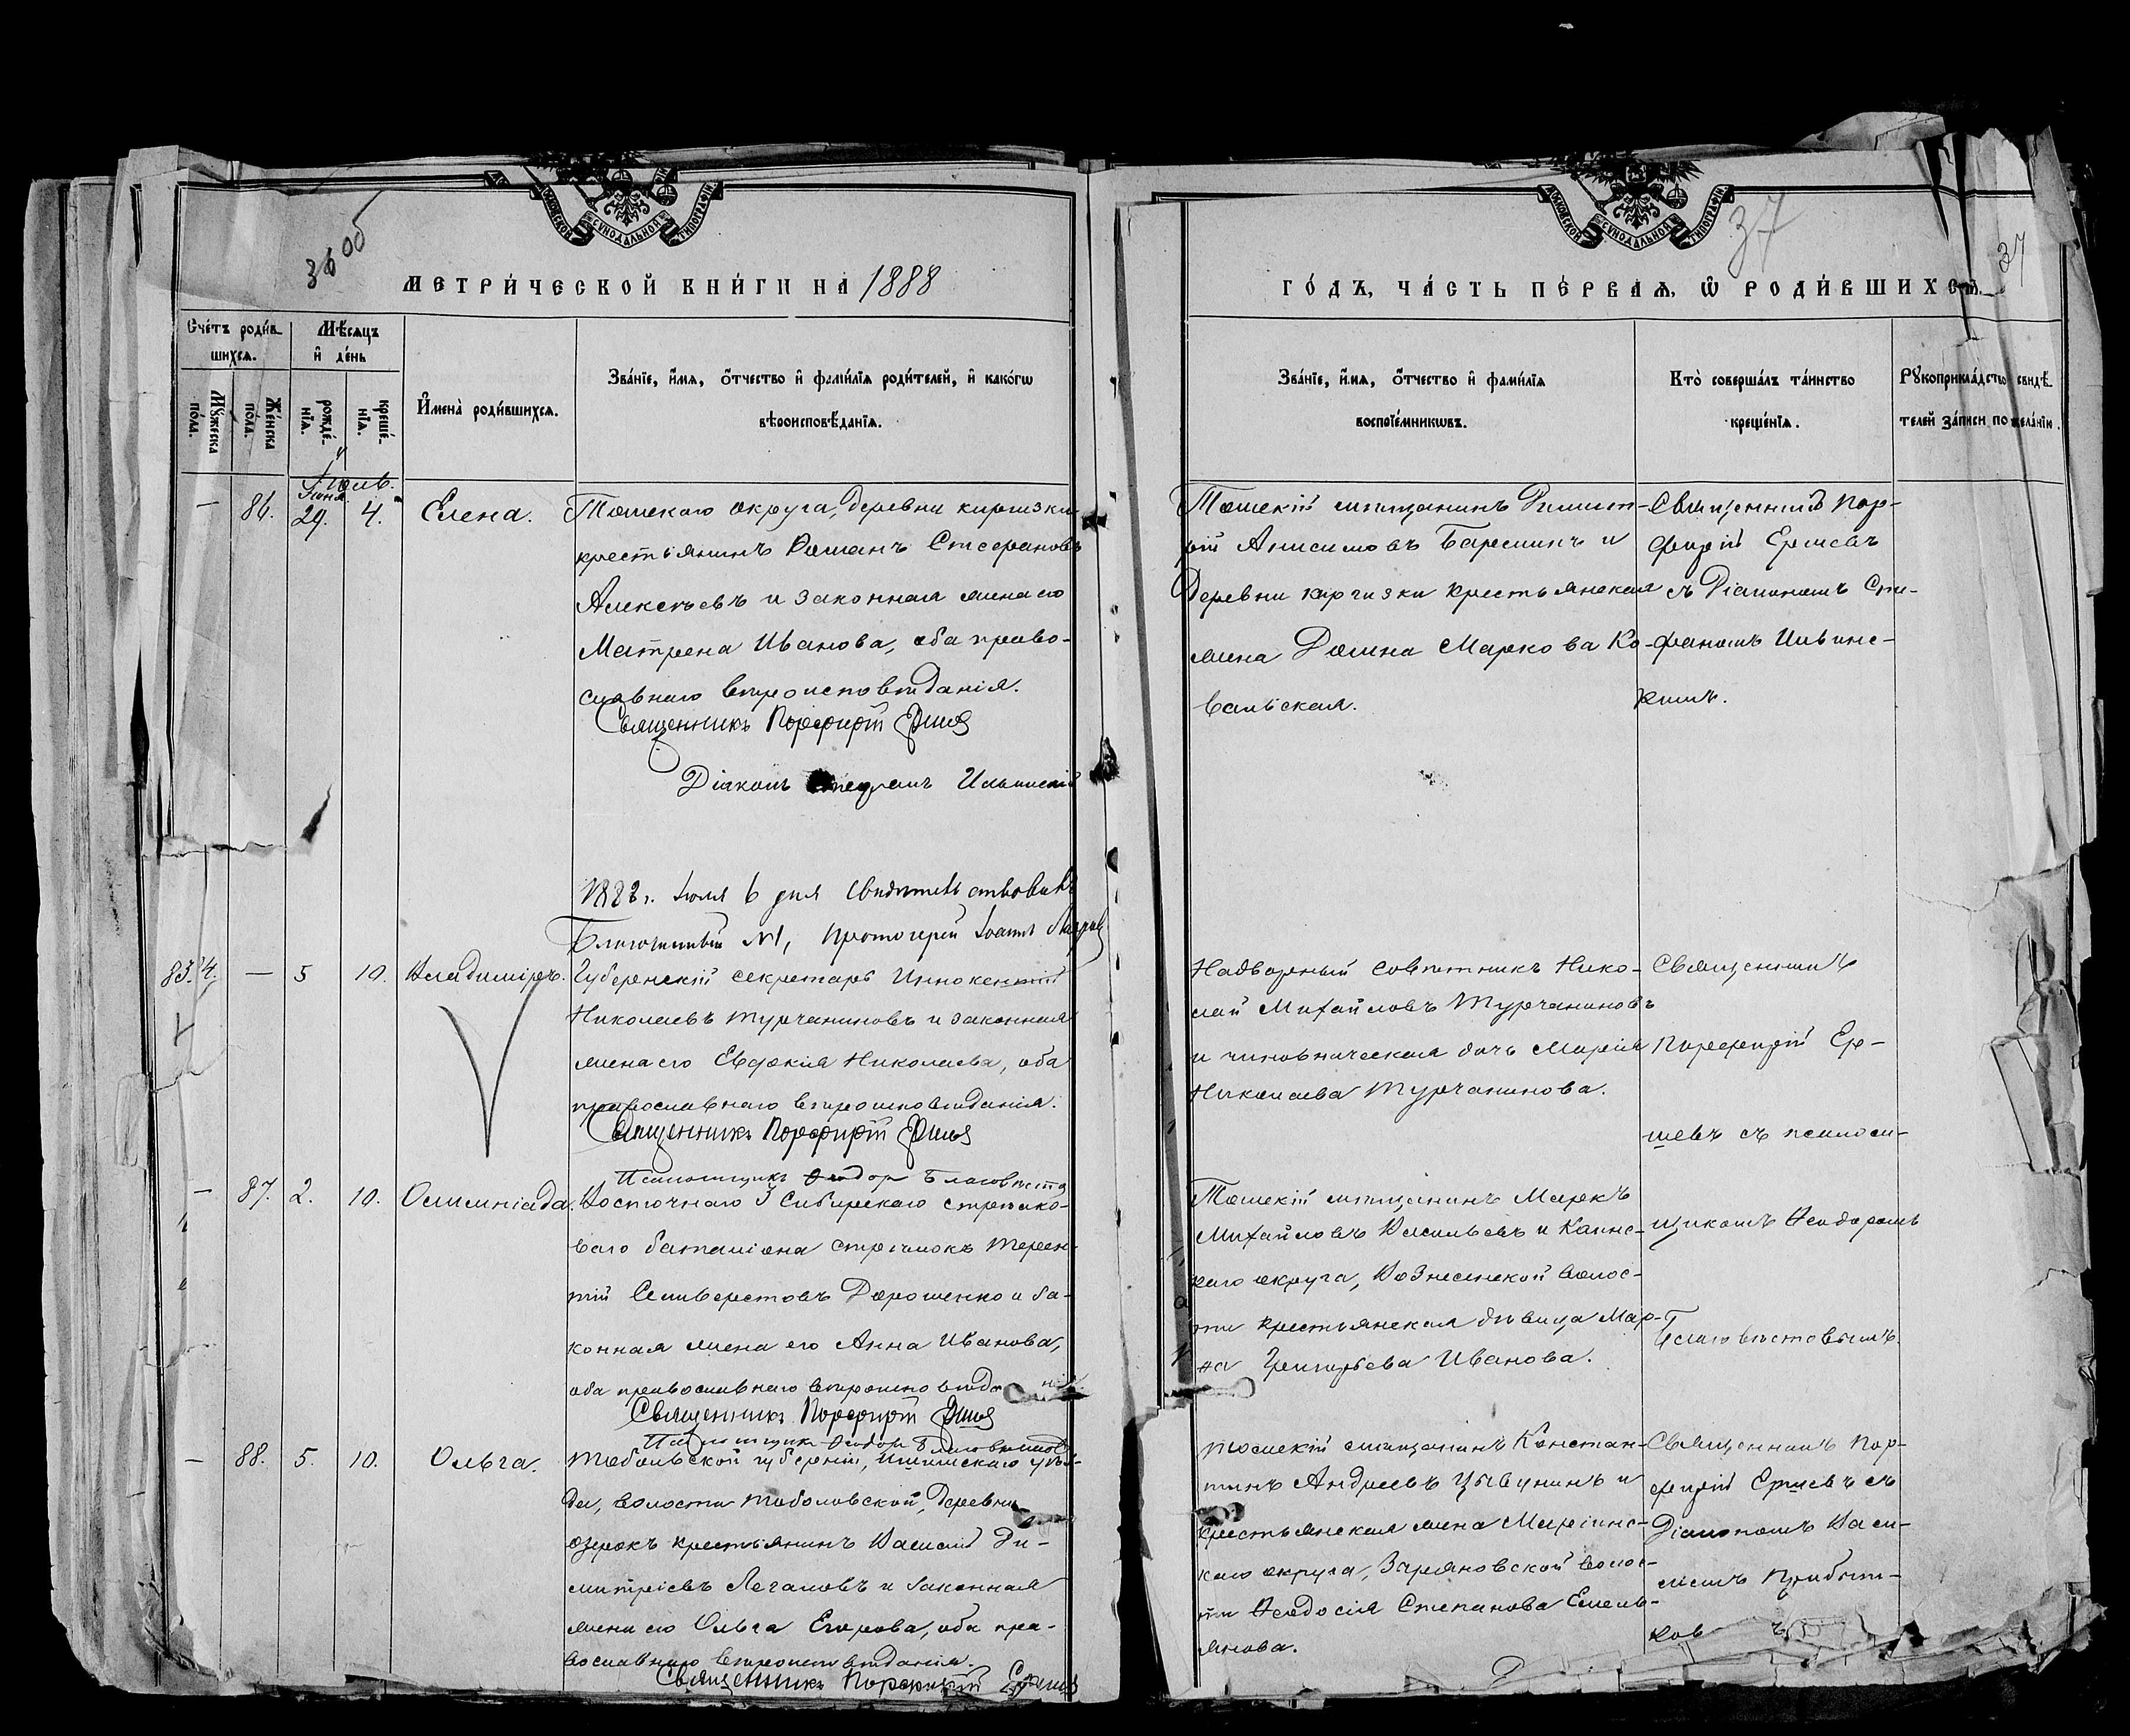 36 об
МЕТРИ́ЧЕСКОЙ КНИ́ГИ НА 1888
Сче́тъ роди́в-
шихсѧ.
Мꙋ́жеска
по́ла.
Же́нска
по́ла.
Мѣ́сѧцъ
и҆ де́нь
рожде́-
нїѧ.
креще́-
нїѧ.
И҆мена̀ роди́вшихсѧ.
Зва́нїе, и҆́мѧ, ѻ҆́тчество и҆ фами́лїѧ роди́телей, и҆ како́гѡ
вѣроисповѣ́данїѧ.
Іюль.
Іюня
— 86. 29. 4. Елена.
Томскаго округа, деревни киргизки
крестьянинъ Романъ Стефановъ
Алексѣевъ и законная жена его
Матрена Иванова, оба право-
славнаго вѣроисповѣданія.
Священникъ Порфирій Ершовъ
Діаконъ Стефанъ Ильинскій
1888 г. Іюля 6 дня свидѣтельствовалъ
Благочинный №1, Протоіерей Іоаннъ
83. 84. — 5 10. Владиміръ.
Губернскій секретарь Иннокентій
Николаевъ Турчаниновъ и законная
жена его Евдокія Николаева, оба
православнаго вѣроисповѣданія.
Священникъ Порфирій Ершовъ
Псаломщикъ Ѳеодоръ Благовѣстов
— 87. 2. 10. Олимпіада.
Восточнаго 3 Сибирскаго стрѣлко-
ваго баталіона стрѣлокъ Терен-
тій Селиверстовъ Дорошенко и за-
конная жена его Анна Иванова,
оба православнаго вѣроисповѣданія.
Священникъ Порфирій Ершовъ
Псаломщикъ Ѳеодоръ Благовѣстов
— 88. 5. 10. Ольга.
Тобольской губерніи, Ишимскаго уѣз-
да, волости Тоболовской, деревни
озерокъ крестьянинъ Василій Ди-
митріевъ Легаловъ и законная
жена его Ольга Егорова, оба пра-
вославнаго вѣроисповѣданія.
Священникъ Порфирій Ершовъ
37
37
ГО́ДЪ, ЧА́СТЬ ПЕ́РВАѦ, Ѡ҆ РОДИ́ВШИХСѦ.
Зва́нїе, и҆́мѧ, ѻ҆́тчество и҆ фами́лїѧ
воспрїе́мникѡвъ.
Кто̀ соверша́лъ та́инство
креще́нїѧ.
Рꙋкоприкла́дство свидѣ́-
телей за́писи по жела́нїю.
Томскій мѣщанинъ Димит-
рій Анисимовъ Баремин и
деревни киргизки крестьянская
жена Домна Маркова Ко-
вальская.
Священникъ Пор-
фирій Ершевъ
съ Діакономъ Сте-
фаномъ Ильинс-
кимъ.
Надворный Совѣтникъ Нико-
лай Михайловъ Турчаниновъ
и чиновническая дочь Марія
Николаева Турчанинова.
Священникъ
Порфирій Ер-
шевъ съ псаломщ-
Томскій мѣщанинъ Марекъ
Михайловъ Васильевъ и Каинс-
каго округа, Вознесенской волос-
ти крестьянская дѣвица Мар-
на Григорьева Иванова.
щикомъ Ѳеодоромъ
Благовѣстовымъ.
Томскій мѣщанинъ Констан-
тинъ Андреевъ Цывунинъ и
крестьянская жена Маріинс-
каго округа, Зыряновской волос-
ти Ѳеодосія Степанова Емель-
янова.
Священникъ Пор-
фирій Ершевъ съ
Діакономъ Васи-
ліемъ Прибыт-
ков